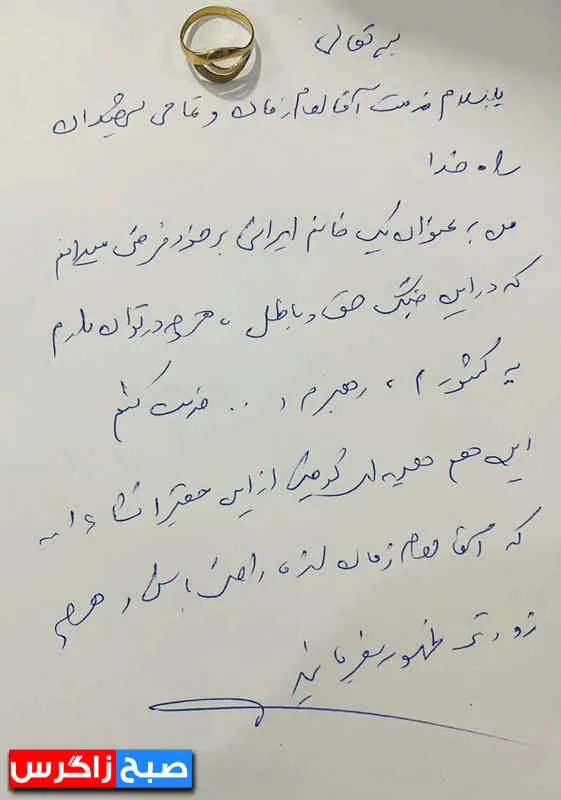 بسمه تعالی
با سلام خدمت آقا امام زمان و تمامی شهیدان
راه خدا
من به عنوان یک خانم ایرانی بر خود فرض میدانم
که در این جنگ حق و باطل، هر چه در توان دارم
به کشورم، رهبرم و .. خدمت کنم
این هم هدیه ای کوچک از این حقیر انشاءا...
که آقا امام زمان از ما راضی باشن و هر چه
زودتر ظهور بفرمایند
صبح زاگرس